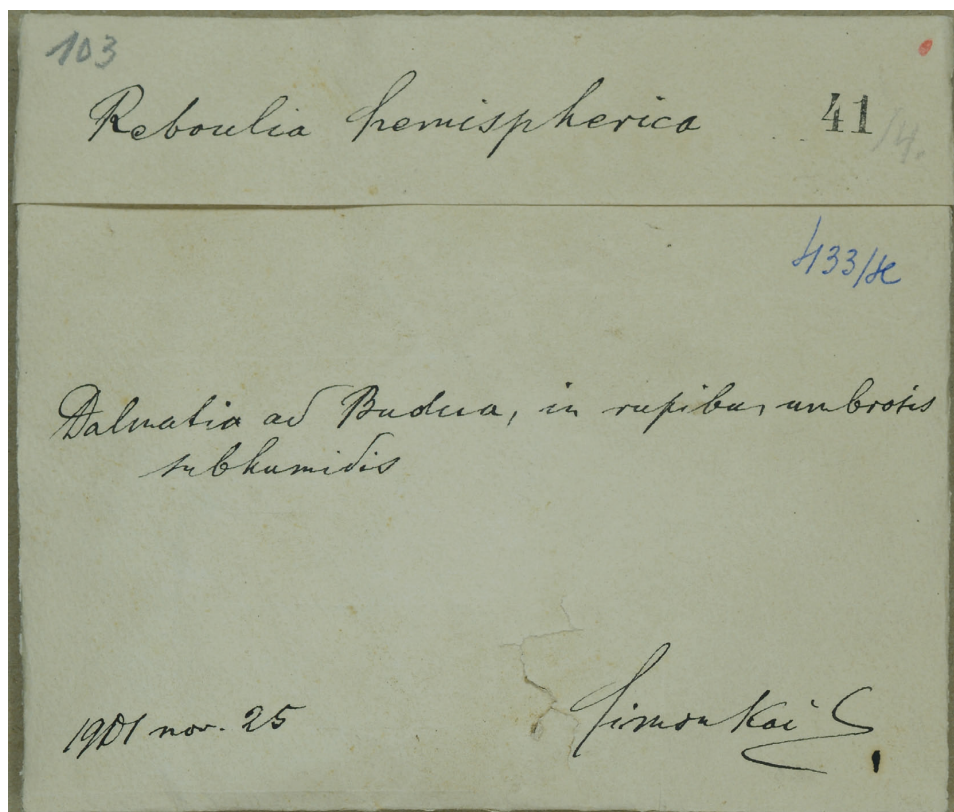 103
Reboulia hemispherica 41/4.
433/
Dalmatia ad Budua, in rupibus umbrosis
subhumidis
1901 nov. 25 Simonkai